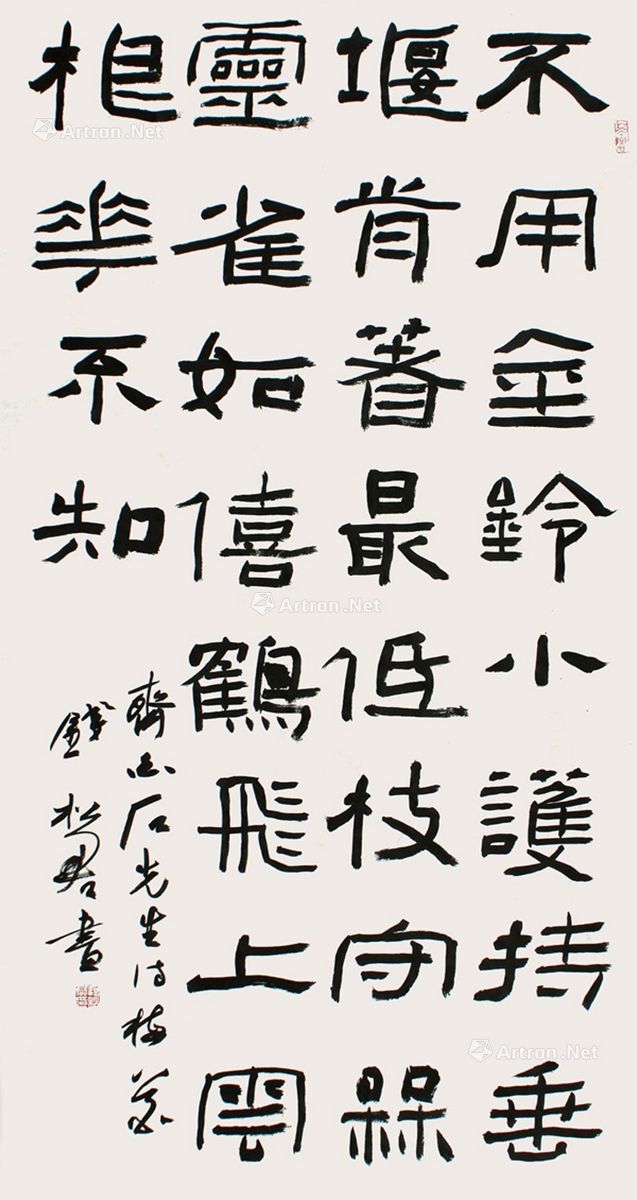 不用金鈴小護持垂
堰肯著最低枝守槑
靈雀如僖鶴飛上雲
根華不知
齊白石先生詩梅
錢松書
Artron.Net
Artron.Net
Artron.Net
Artron.Net
Artron.Net